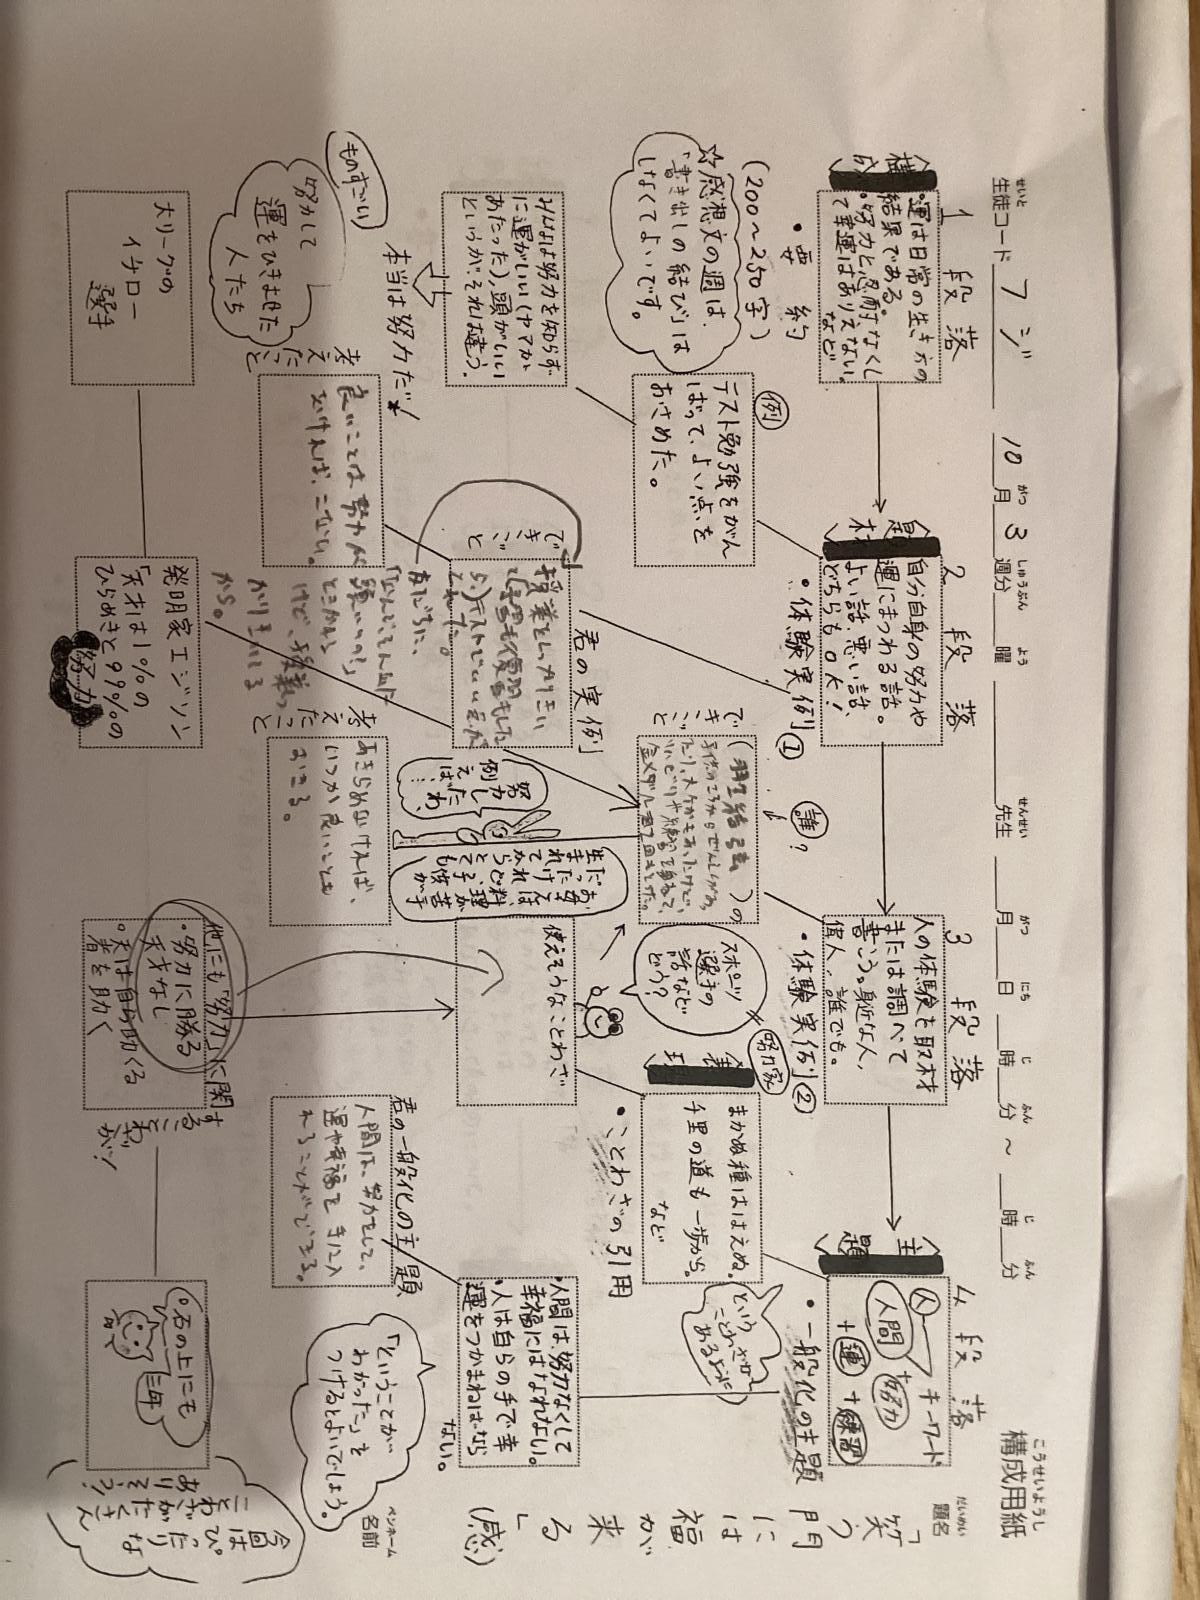 構成用紙
こうせいようし
生徒コード 7 ジ 10 月 3 週分 曜 先生 月 日 時 分 ~ 時 分
題名
「笑う門には福が来る」(感)
名前
ペンネーム
1 段落
構成
・運は日常の生き方の
結果である
・努力と忍耐なくし
て幸運はありえない。
など
・要約
(200〜250字)
☆感想文の週は、
「書き出しの結び」は
しなくてよいです。
2 段落
題材
自分自身の努力や
運にまつわる話。
よい話、悪い話、
どちらもOK!
・体験実例①
例
テスト勉強をがん
ばって、よい点を
おさめた。
みんなは努力を知らず
に運がいい(ヤマが
あたった)、頭がいい
というが、それは違う。
本当は努力だ!
3 段落
人の体験を取材
または調べて
書こう。身近な人、
偉人、誰でも。
・体験実例②
誰?
努力家
スポーツ
選手の
話など
どう?
できごと
君の実例
できごと
考えたこと
良いことは努力が
なければ、こない。
考えたこと
あきらめなければ、
いつか良いことも
おきる。
努力したわ、
例えば…
お母さんは、料理が苦手
だったけれど、子供が
生まれてからとても
ものすごい
努力して
運をひきよせた
人たち
大リーグの
イチロー
選手
発明家エジソン
「天才は1%の
ひらめきと99%の
努力」
4 段落
主題
キーワード
人間
努力
+運+練習
・一般化の主題
表現
まかぬ種ははえぬ。
千里の道も一歩から。
など
・ことわざの引用
という
ことわざが
あるように
使えそうなことわざ
・人間は、努力なくして
幸福にはなれない。
・人は自らの手で幸
運をつかまねばなら
ない。
君の一般化の主題
人間は、努力をして、
運や幸福を手に入
れることができる。
「ということが
わかった」を
つけるとよいでしょう。
他にも「努力」に関
することわざが!
・努力に勝る
天才なし
。天は自ら助くる
者を助く
。石の上にも
三年
今回はぴったりな
ことわざがたくさん
ありそう?